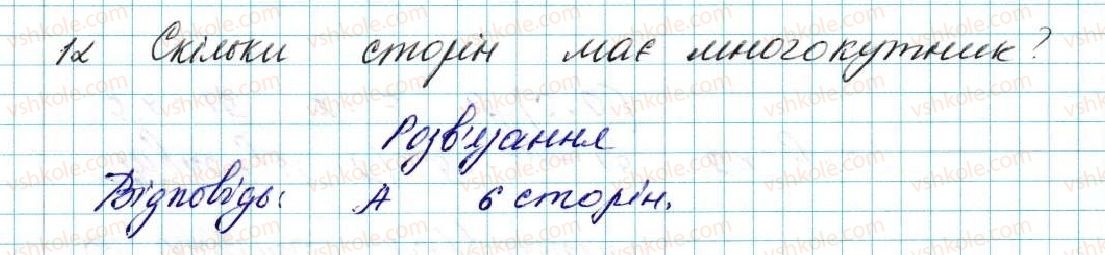 12 Скільки сторін має многокутник?
Розв'язання
Відповідь: А 6 сторін.